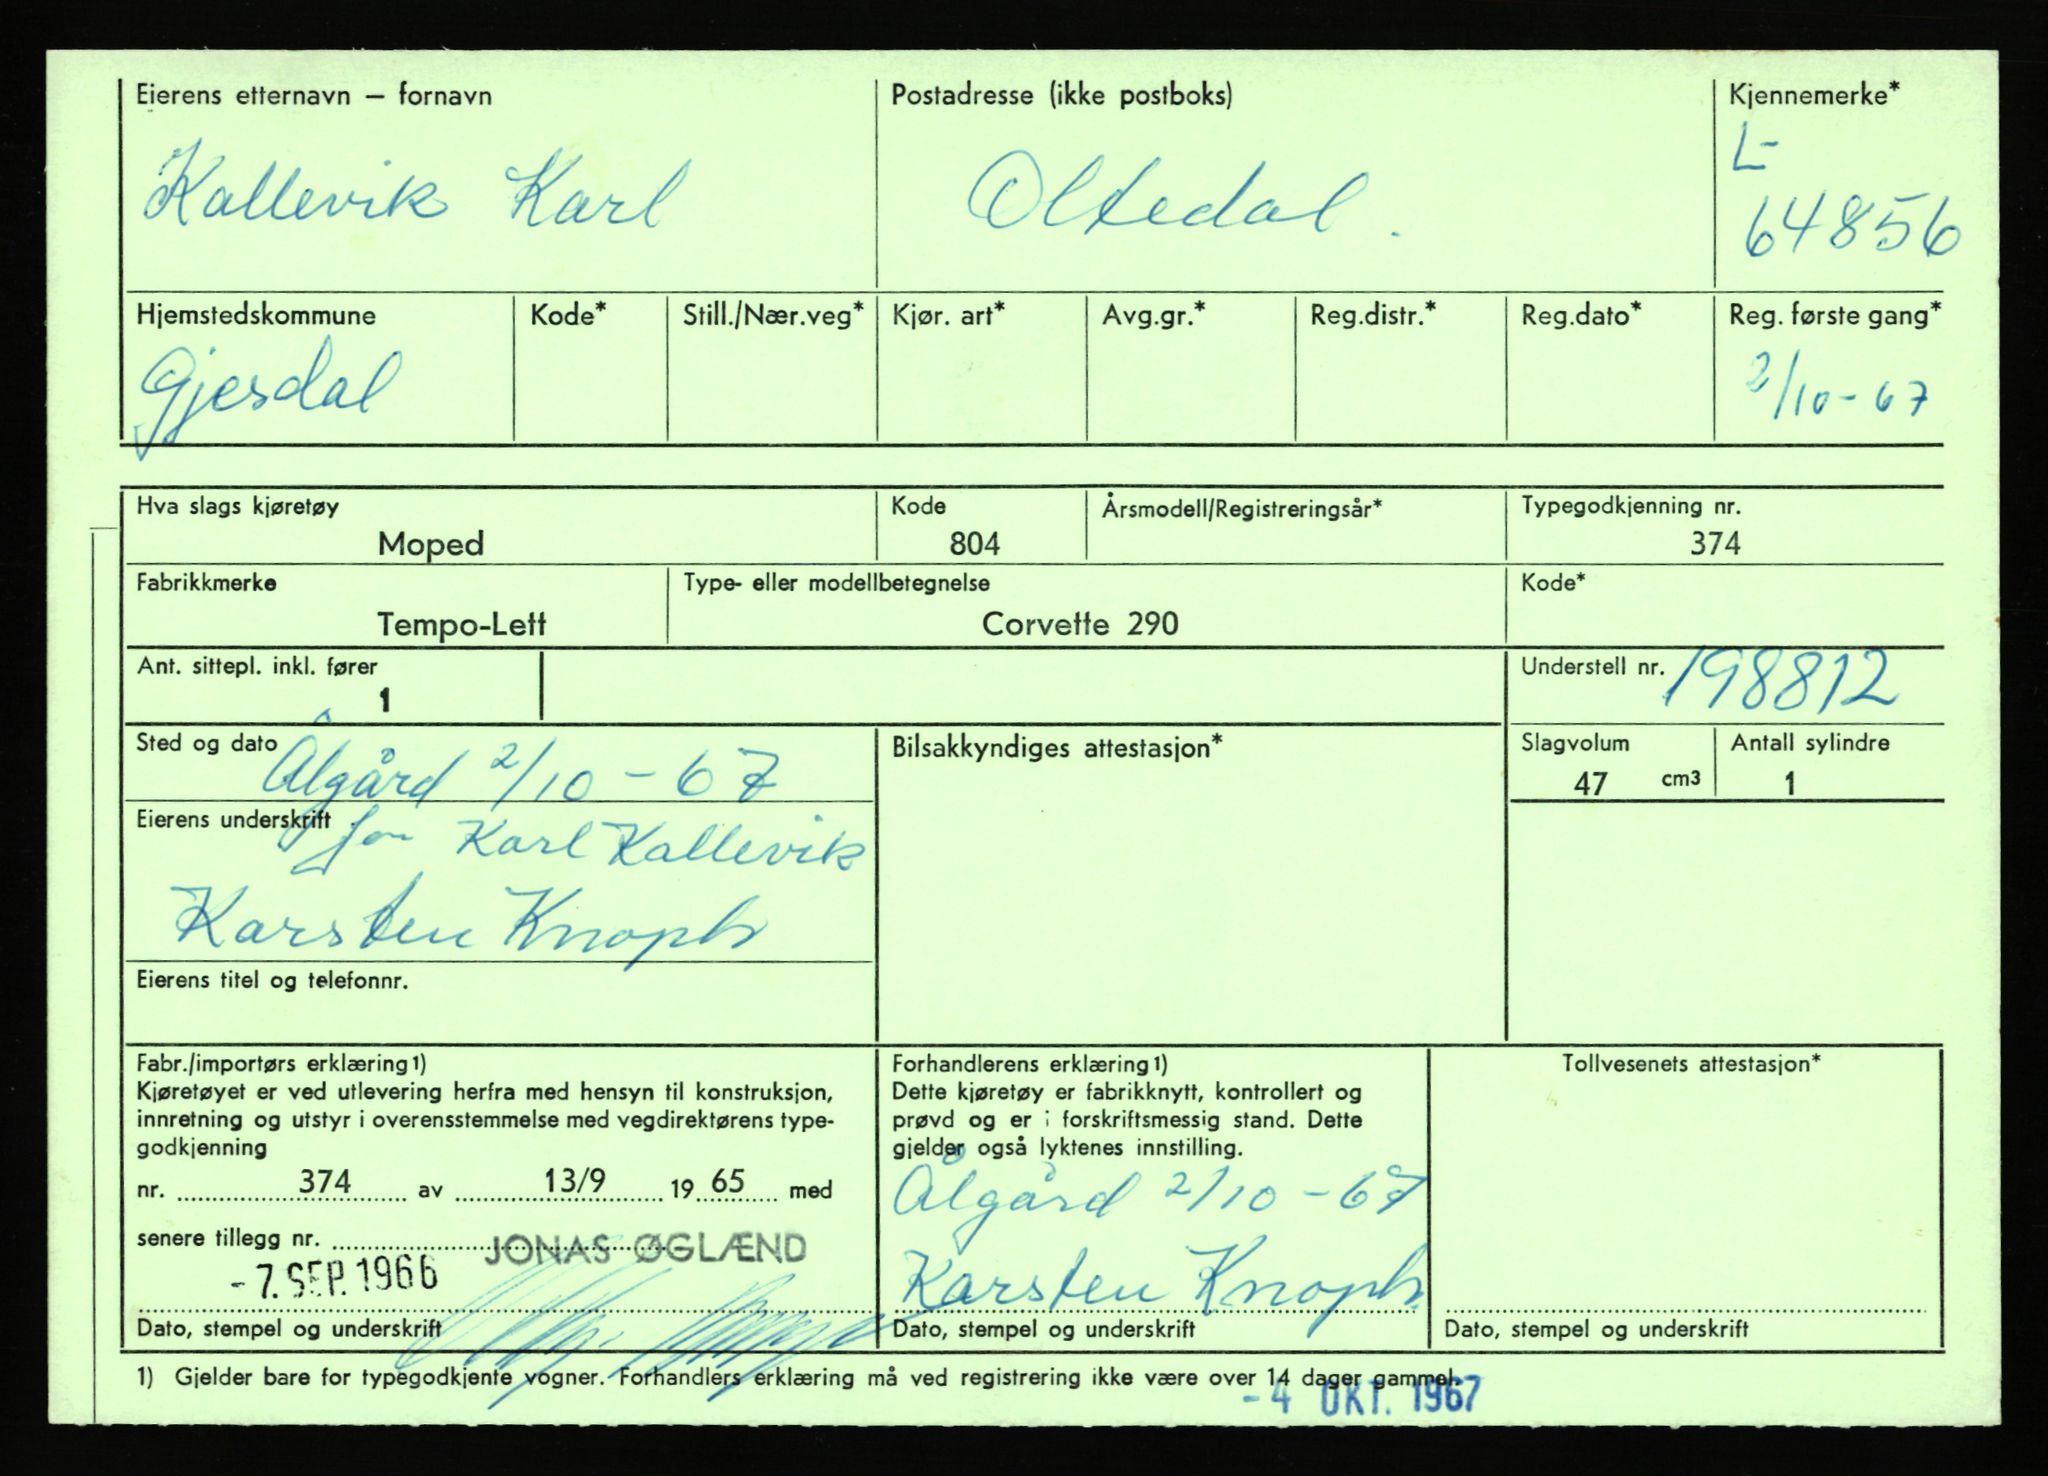 Eierens etternavn – fornavn
Kallevik Karl
Postadresse (ikke postboks)
Oltedal.
Kjennemerke*
L-
64856
Hjemstedskommune
Gjesdal
Kode*
Still./Nær.veg*
Kjør. art*
Avg.gr.*
Reg.distr.*
Reg.dato*
Reg. første gang*
2/10-67
Hva slags kjøretøy
Moped
Kode
804
Årsmodell/Registreringsår*
Typegodkjenning nr.
374
Fabrikkmerke
Tempo-Lett
Type- eller modellbetegnelse
Corvette 290
Kode*
Ant. sittepl. inkl. fører
1
Understell nr. 198812
Sted og dato Ålgård 2/10-67
Bilsakkyndiges attestasjon*
Slagvolum
47 cm3
Antall sylindre
1
Eierens underskrift for Karl Kallevik
Karsten Knoph
Eierens titel og telefonnr.
Fabr./importørs erklæring 1)
Kjøretøyet er ved utlevering herfra med hensyn til konstruksjon,
innretning og utstyr i overensstemmelse med vegdirektørens type-
godkjenning
nr. 374 av 13/9 19 65 med
senere tillegg nr.
JONAS ØGLÆND
-7. SEP. 1966
Dato, stempel og underskrift
Forhandlerens erklæring 1)
Dette kjøretøy er fabrikknytt, kontrollert og
prøvd og er i forskriftsmessig stand. Dette
gjelder også lyktenes innstilling.
Ålgård 2/10-67
Karsten Knoph
Dato, stempel og underskrift
Tollvesenets attestasjon*
Dato, stempel og underskrift
1) Gjelder bare for typegodkjente vogner. Forhandlers erklæring må ved registrering ikke være over 14 dager gammel.
-4 OKT. 1967